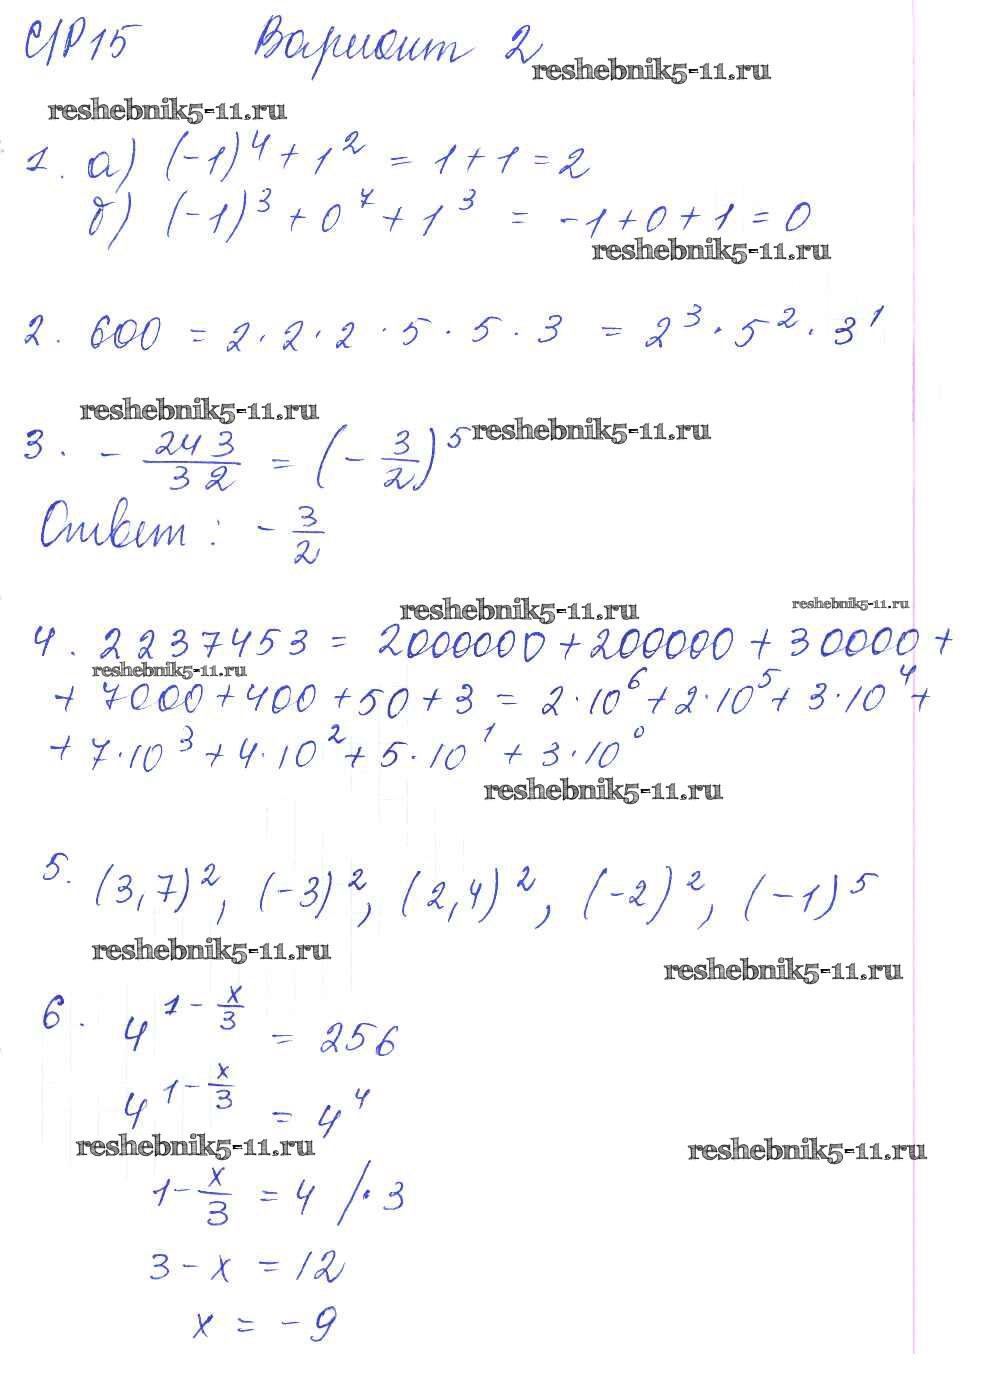 С/Р 15 Вариант 2
reshebnik5-11.ru
reshebnik5-11.ru
1. а) (-1)^4 + 1^2 = 1 + 1 = 2
б) (-1)^3 + 0^7 + 1^3 = -1 + 0 + 1 = 0
reshebnik5-11.ru
2. 600 = 2 · 2 · 2 · 5 · 5 · 3 = 2^3 · 5^2 · 3^1
reshebnik5-11.ru
reshebnik5-11.ru
3. - 243/32 = (- 3/2)^5
Ответ: - 3/2
reshebnik5-11.ru
reshebnik5-11.ru
4. 2237453 = 2000000 + 200000 + 30000 +
reshebnik5-11.ru
+ 7000 + 400 + 50 + 3 = 2·10^6 + 2·10^5 + 3·10^4 +
+ 7·10^3 + 4·10^2 + 5·10^1 + 3·10^0
reshebnik5-11.ru
5. (3,7)^2, (-3)^2, (2,4)^2, (-2)^2, (-1)^5
reshebnik5-11.ru
reshebnik5-11.ru
6. 4^(1 - x/3) = 256
4^(1 - x/3) = 4^4
reshebnik5-11.ru
reshebnik5-11.ru
1 - x/3 = 4 /· 3
3 - x = 12
x = -9